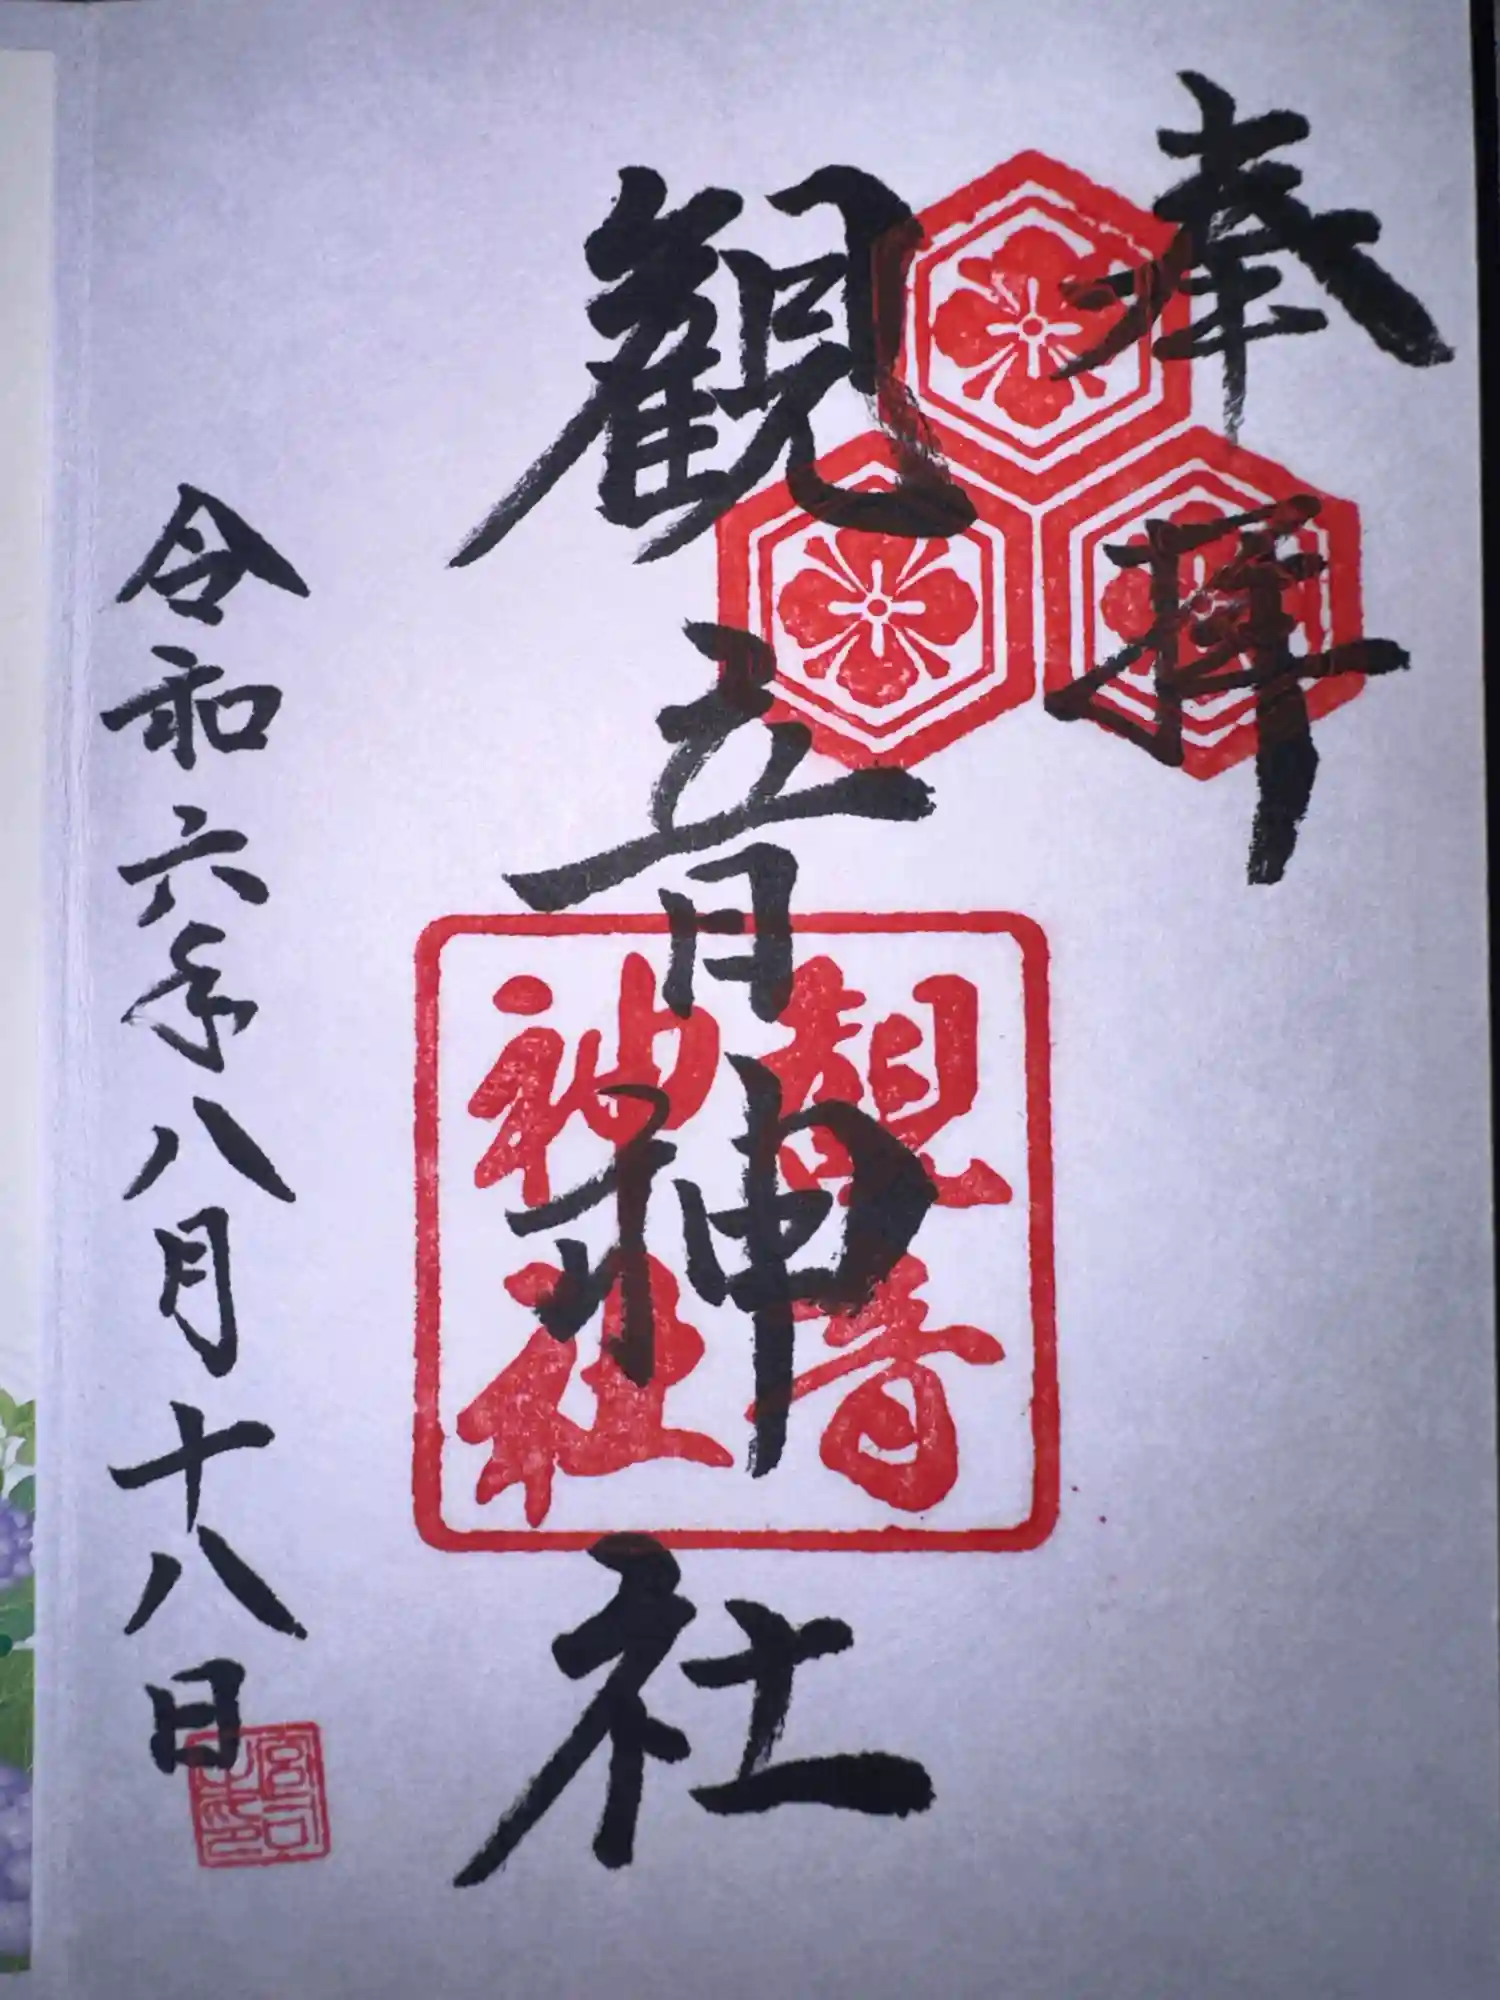 奉拝
観音神社
観音
神社
令和六年八月十八日
宮司
之印